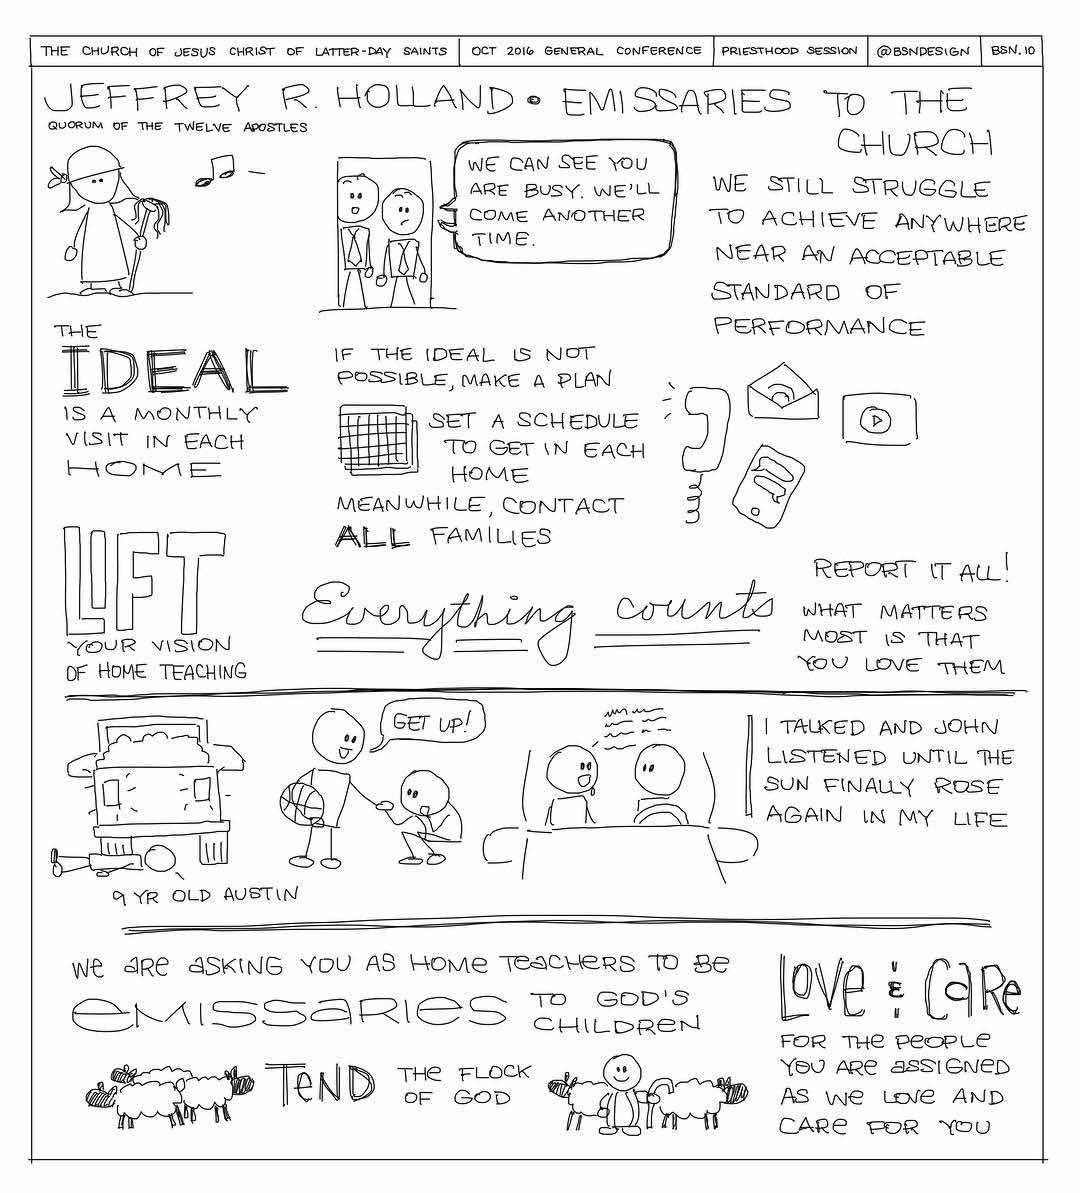 THE CHURCH OF JESUS CHRIST OF LATTER-DAY SAINTS
OCT 2016 GENERAL CONFERENCE
PRIESTHOOD SESSION
@BSNDESIGN
BSN.10
JEFFREY R. HOLLAND • EMISSARIES TO THE
CHURCH
QUORUM OF THE TWELVE APOSTLES
WE CAN SEE YOU
ARE BUSY. WE'LL
COME ANOTHER
TIME.
WE STILL STRUGGLE
TO ACHIEVE ANYWHERE
NEAR AN ACCEPTABLE
STANDARD OF
PERFORMANCE
THE
IDEAL
IS A MONTHLY
VISIT IN EACH
HOME
IF THE IDEAL IS NOT
POSSIBLE, MAKE A PLAN
SET A SCHEDULE
TO GET IN EACH
HOME
MEANWHILE, CONTACT
ALL FAMILIES
LIFT
YOUR VISION
OF HOME TEACHING
Everything counts
REPORT IT ALL!
WHAT MATTERS
MOST IS THAT
YOU LOVE THEM
GET UP!
9 YR OLD AUSTIN
I TALKED AND JOHN
LISTENED UNTIL THE
SUN FINALLY ROSE
AGAIN IN MY LIFE
We aRe aSKING YOU AS HOMe TeaCHERS TO Be
eMISSaRIeS TO GOD'S
CHILDReN
TeND THe FLOCK
OF GOD
LOVe & CaRe
FOR THe PeOPLe
YOU ARe aSSIGNeD
AS We LOVe AND
CARe FOR YOU